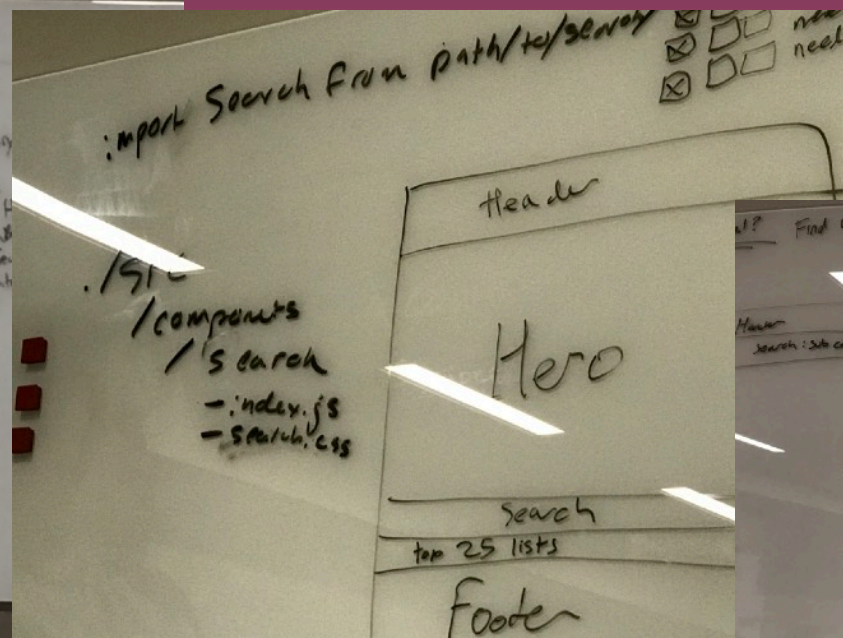 import Search from path/to/search
need
./src
/components
/search
- index.js
- search.css
Header
Hero
Search
top 25 lists
Footer
Find
Search: sub